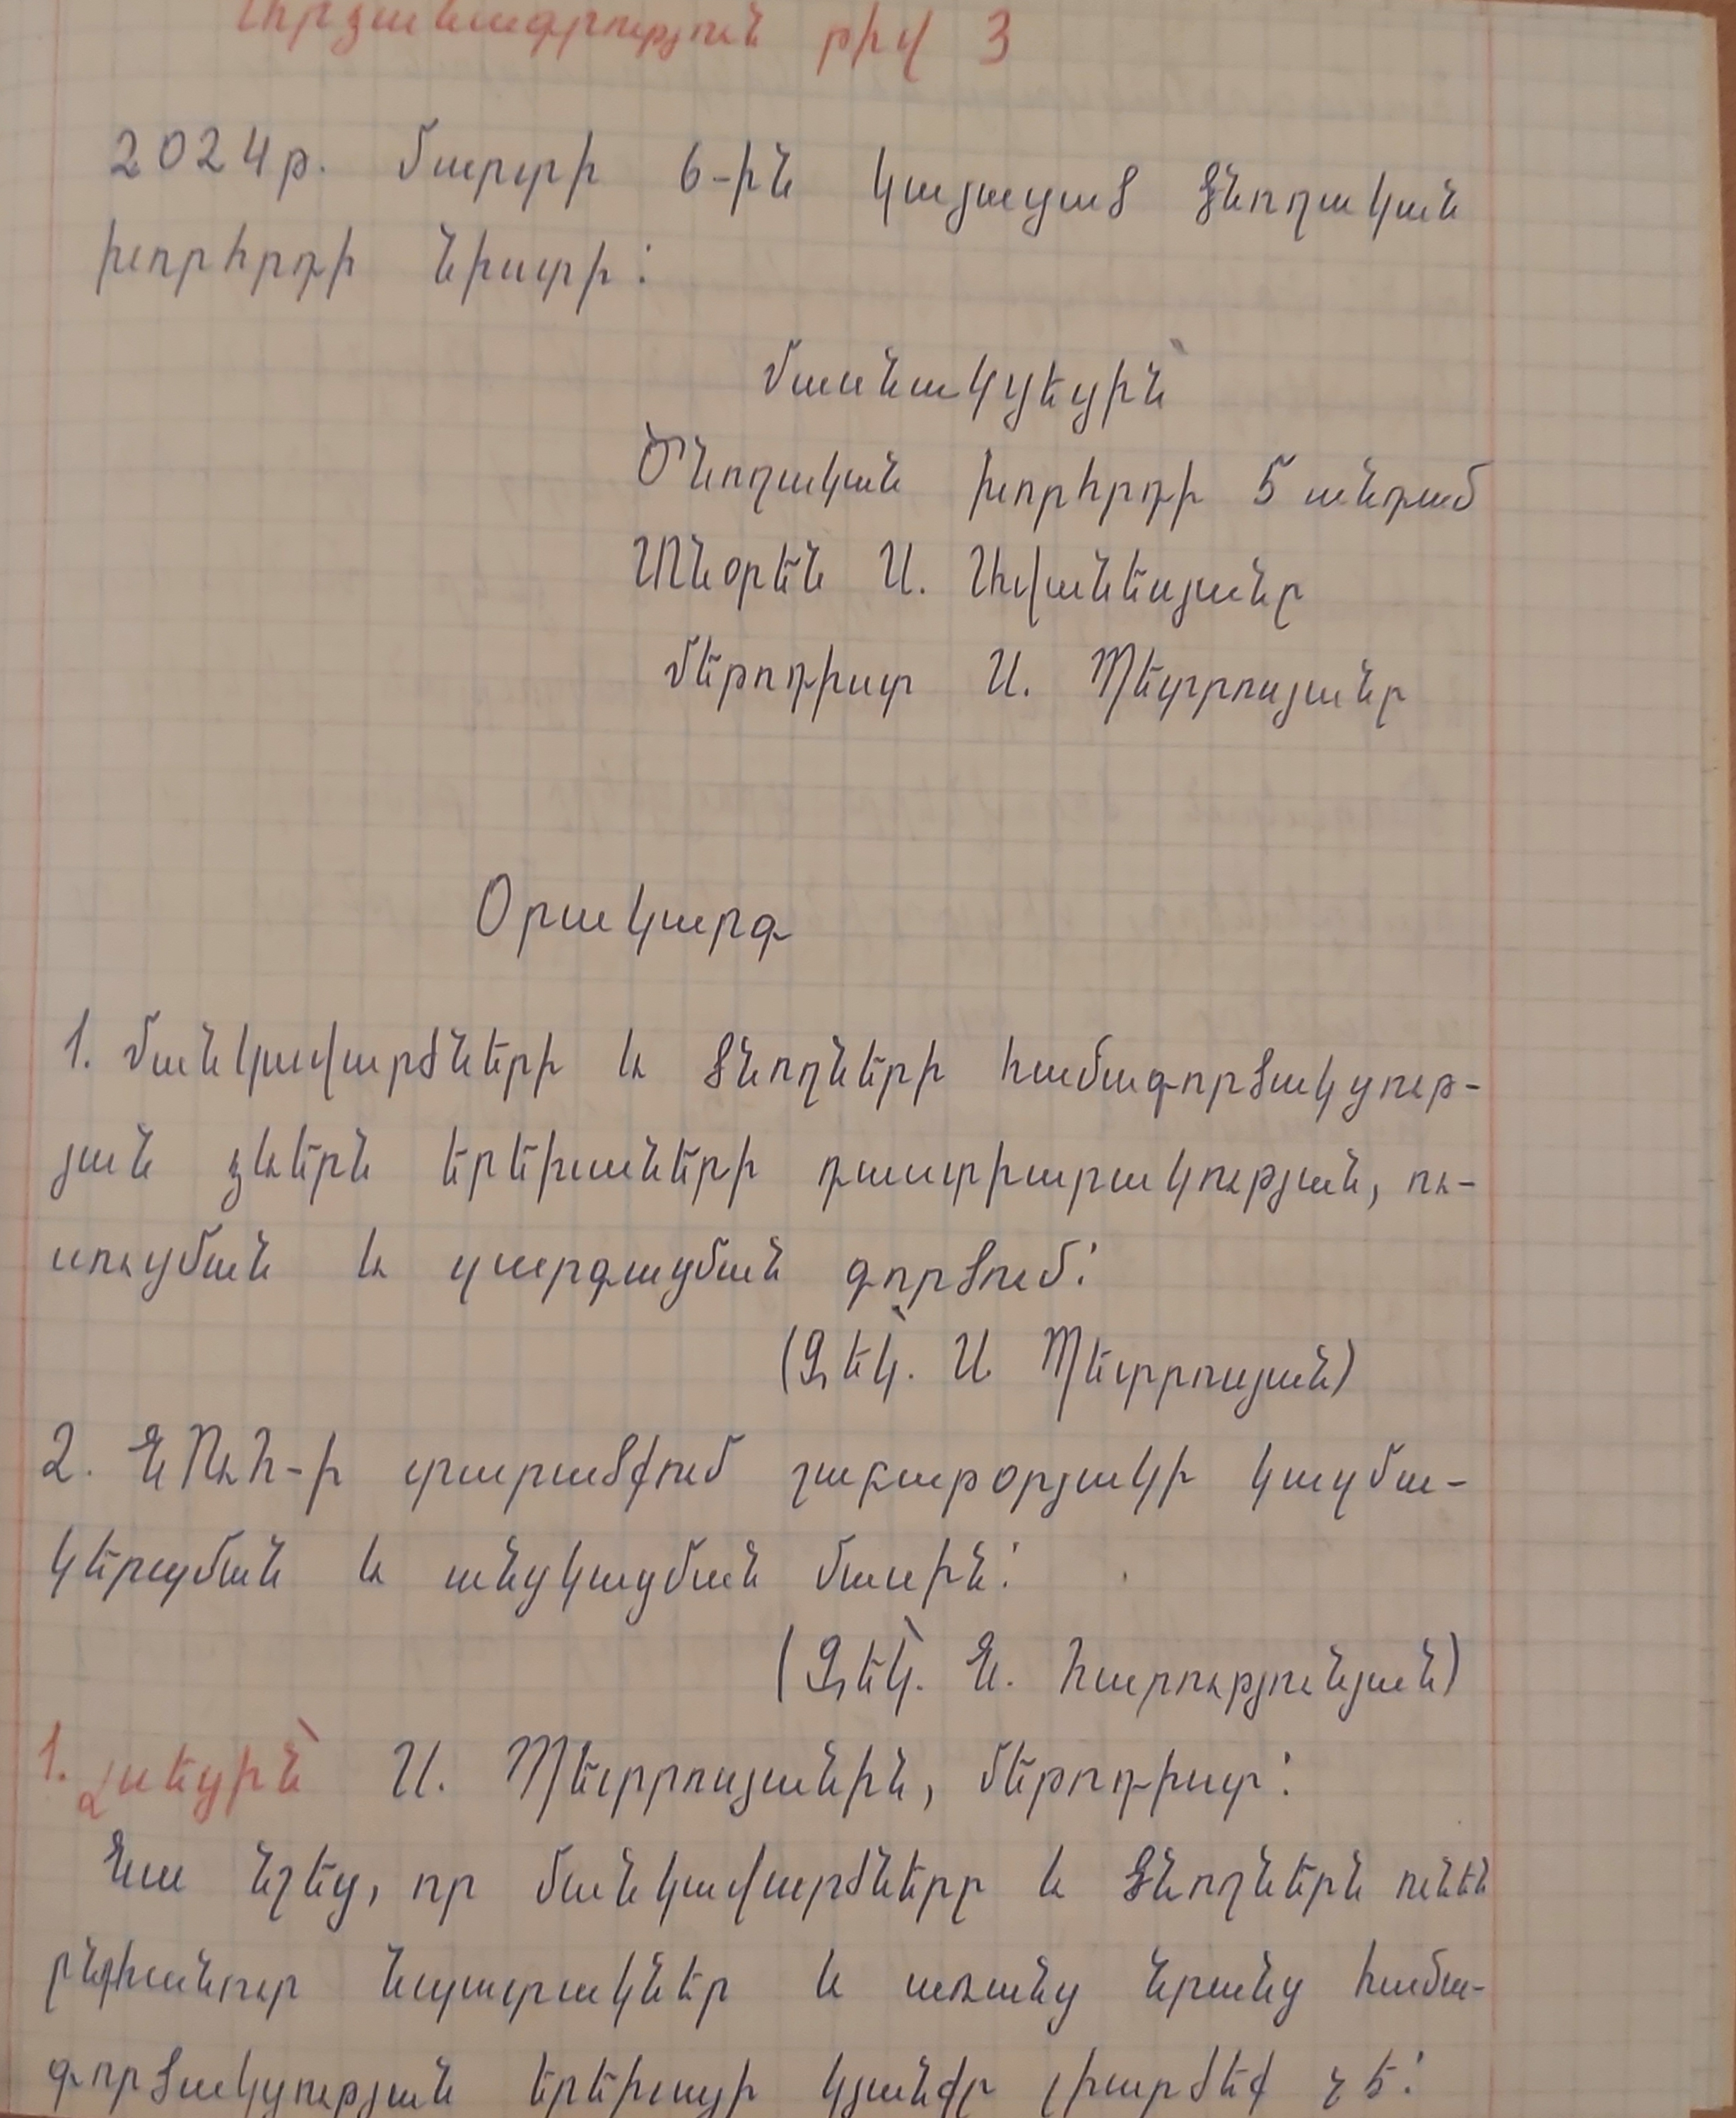 Արձանագրություն թիվ 3
2024թ. մարտի 6-ին կայացած ծնողական
խորհրդի նիստի:
Մասնակցեցին՝
Ծնողական խորհրդի 5 անդամ
Տնօրեն Ա. Հովանեսյանը
Մեթոդիստ Ա. Պետրոսյանը
Օրակարգ
1. Մանկավարժների և ծնողների համագործակցութ-
յան ձևերն երեխաների դաստիարակության, ու-
սուցման և զարգացման գործում:
(Զեկ.՝ Ա Պետրոսյան)
2. ՆՈւՀ-ի տարածքում շաբաթօրյակի կազմա-
կերպման և անցկացման մասին:
(Զեկ.՝ Ն. Հարությունյան)
1. Լսեցին՝ Ա. Պետրոսյանին, մեթոդիստ:
Նա նշեց, որ մանկավարժները և ծնողներն ունեն
ընդհանուր նպատակներ և առանց նրանց համա-
գործակցության երեխայի կյանքը լիարժեք չէ: